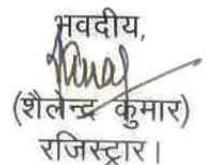 भवदीय,
(शैलेन्द्र कुमार)
रजिस्ट्रार।